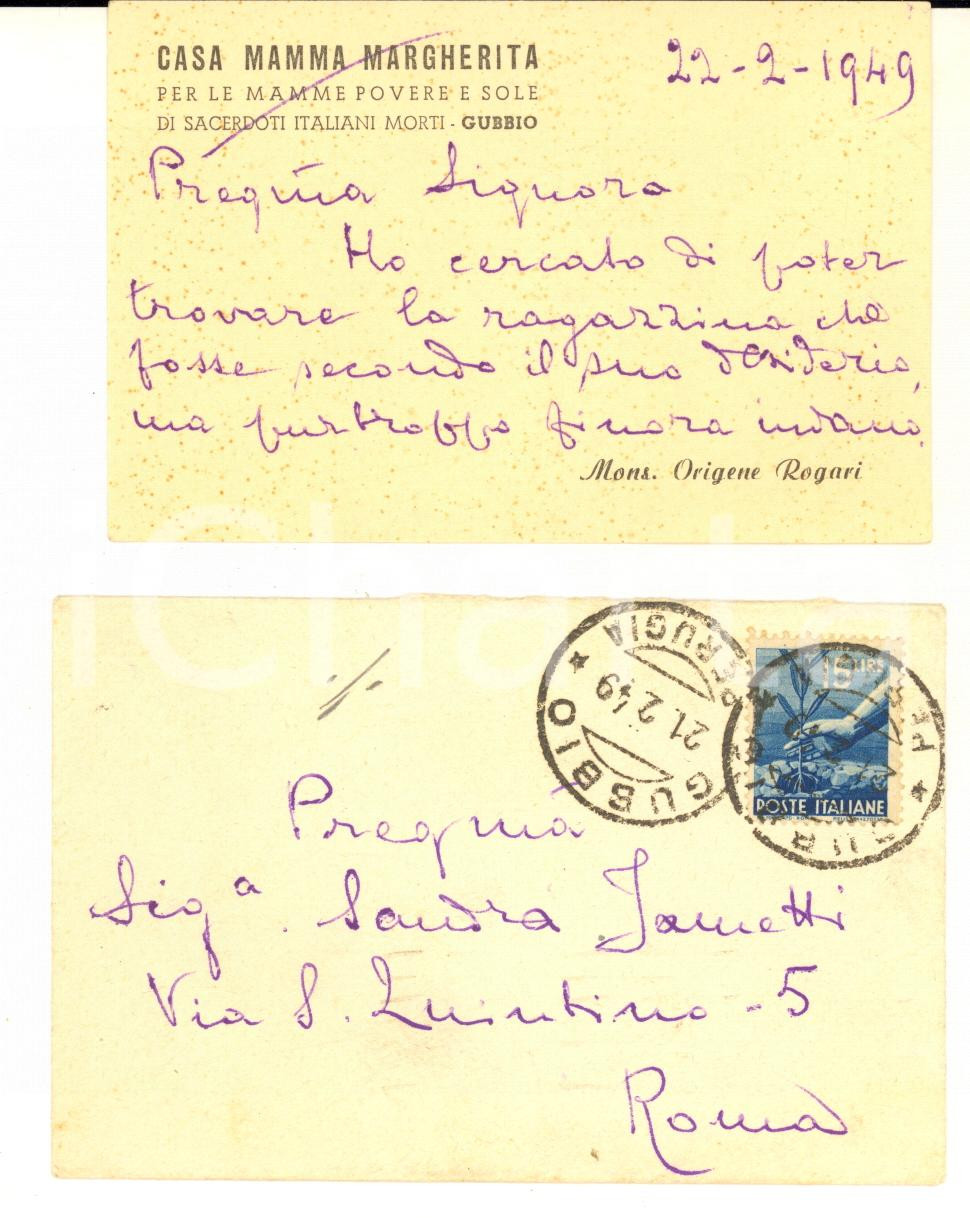 CASA MAMMA MARGHERITA
PER LE MAMME POVERE E SOLE
DI SACERDOTI ITALIANI MORTI - GUBBIO
22-2-1949
Preg̅m̅a Signora
Ho cercato di poter
trovare la ragazzina che
fosse secondo il suo desiderio,
ma purtroppo finora invano.
Mons. Origene Rogari
GUBBIO
PERUGIA
21.2.49
15 LIRE
POSTE ITALIANE
Pregma
Sigª. Sandra Jametti
Via S. Quintino - 5
Roma